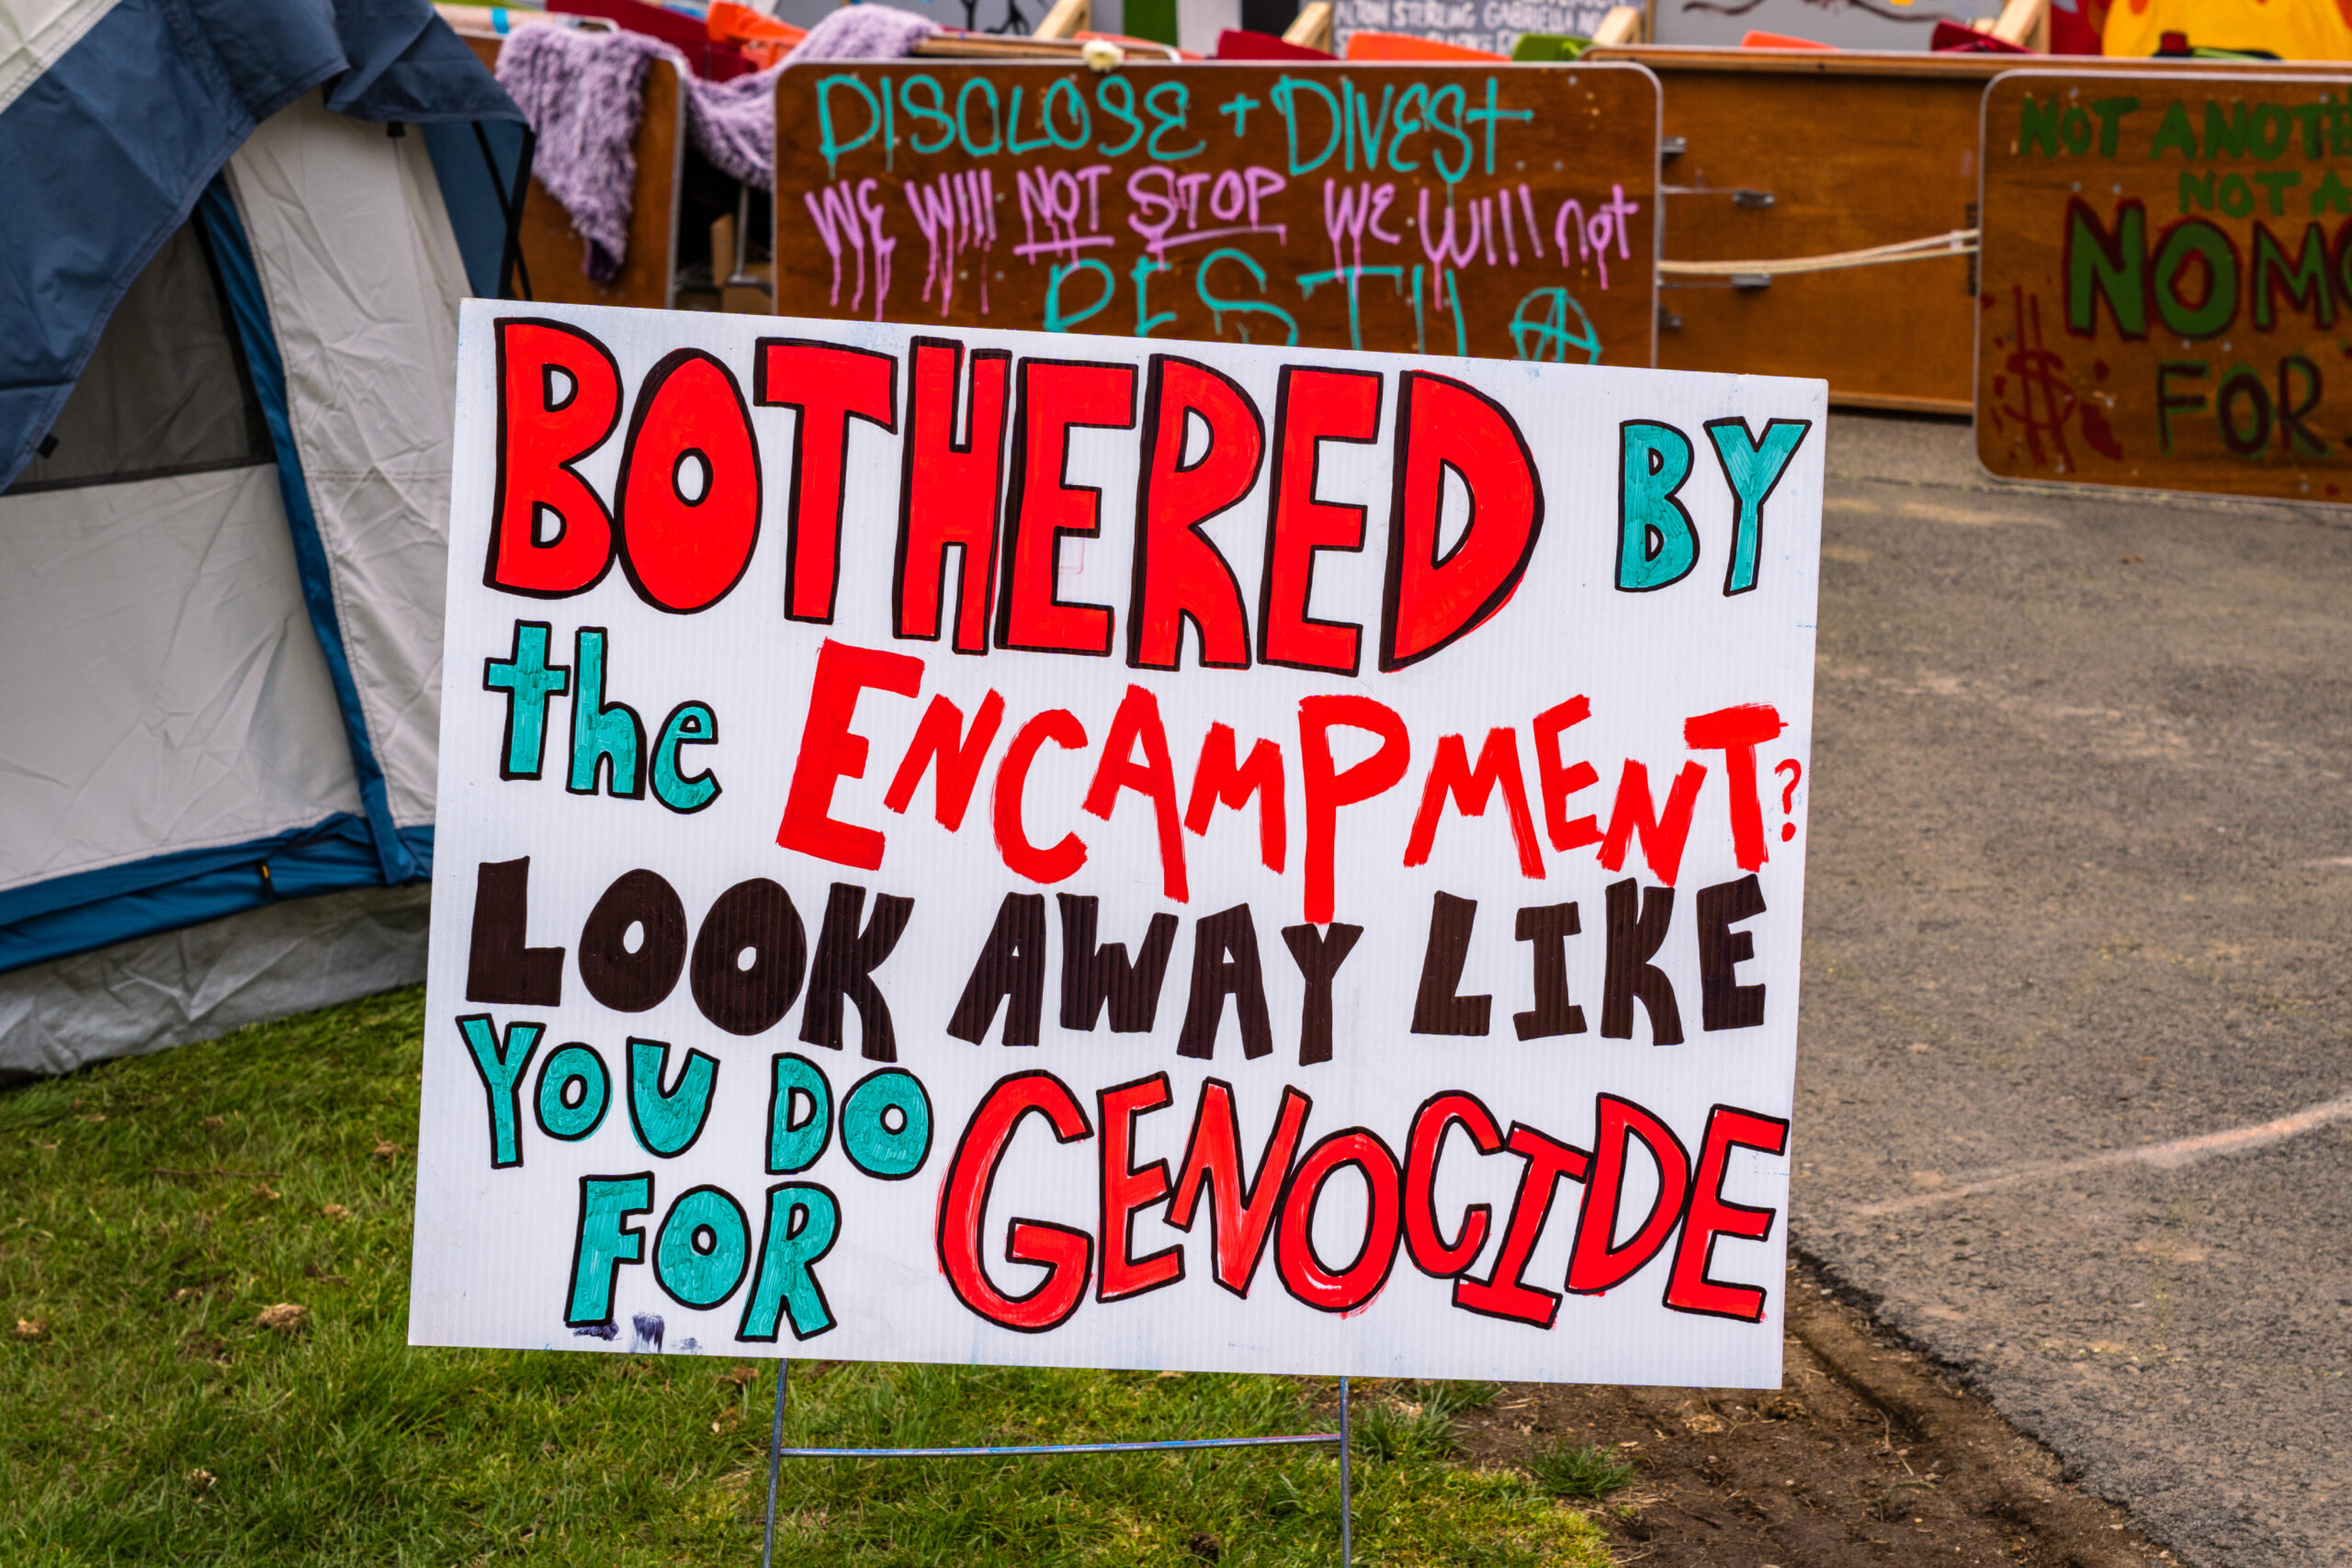 ALTON STERLING GABRIELLA
DISCLOSE + DIVEST
WE WIll NOT STOP WE WIll not
REST
NOT
NOT A
NO
$
FOR
BOTHERED BY
the ENCAMPMENT?
LOOK AWAY LIKE
YOU DO
FOR GENOCIDE